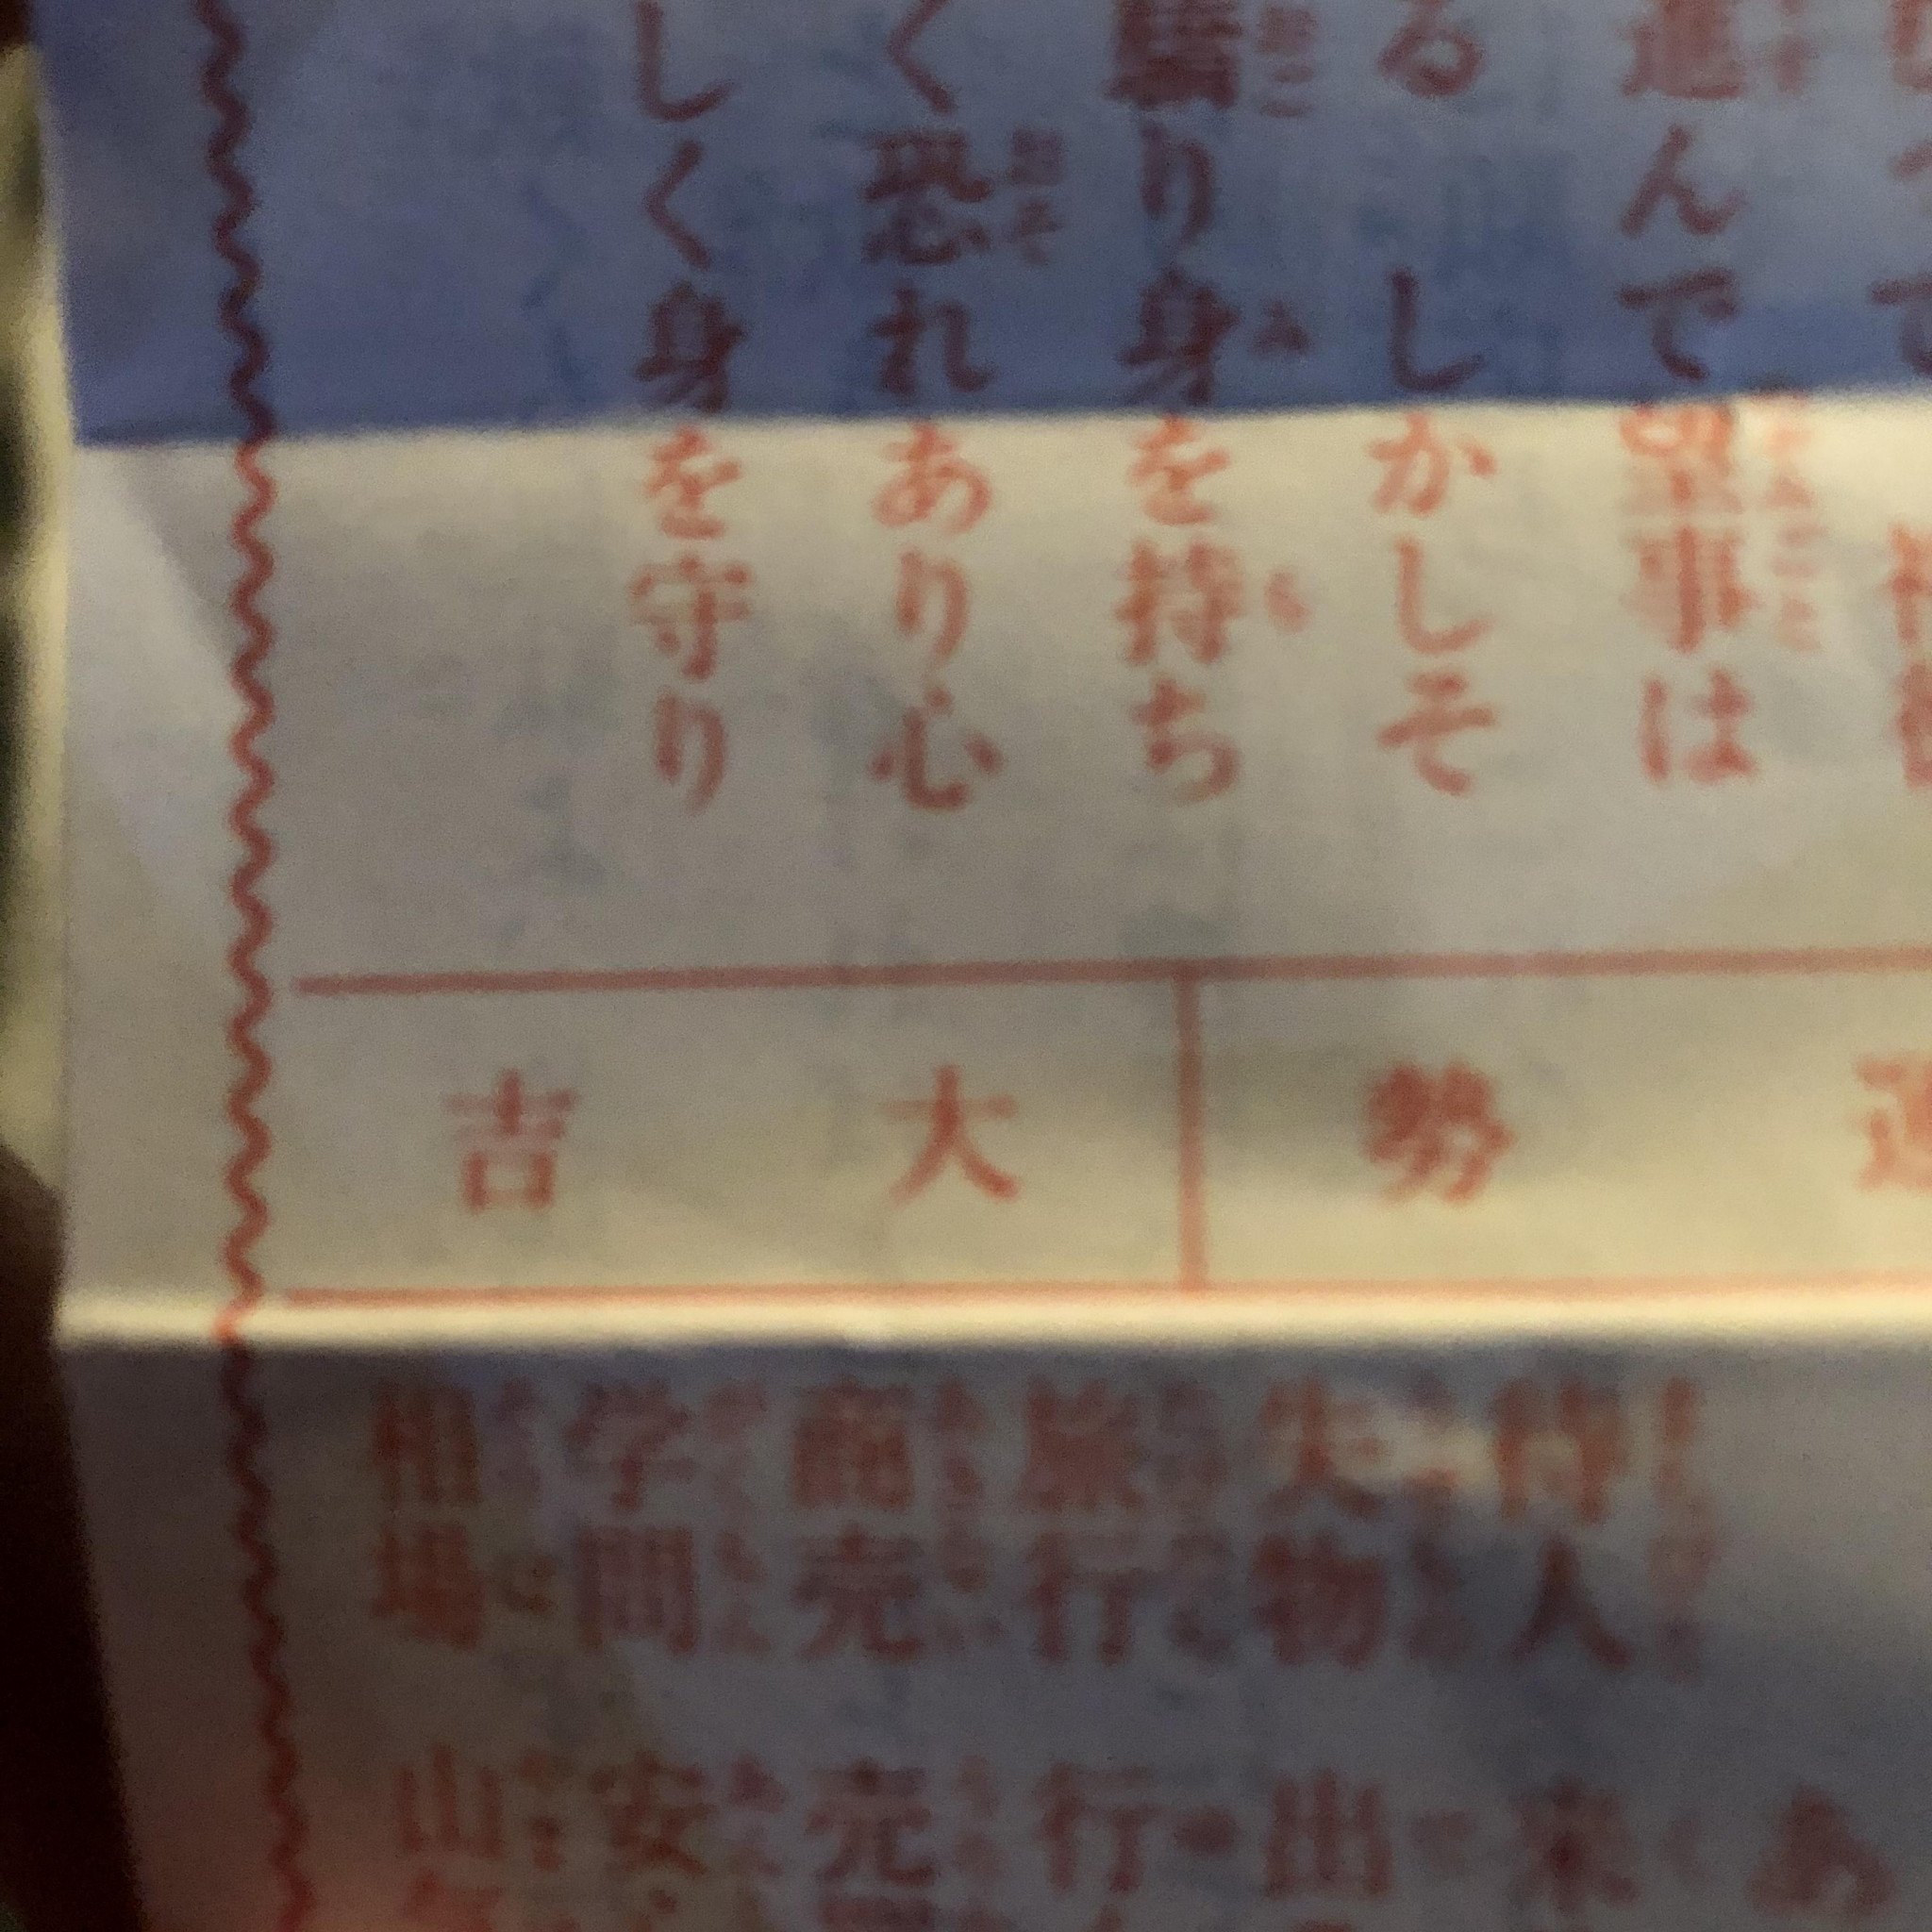 進んで望事は
る しかしそ
驕り身を持ち
く恐れあり心
しく身を守り
運勢
大吉
あ
待人 来
失物 出
旅行 行
商売 売
学問 安
相場 山